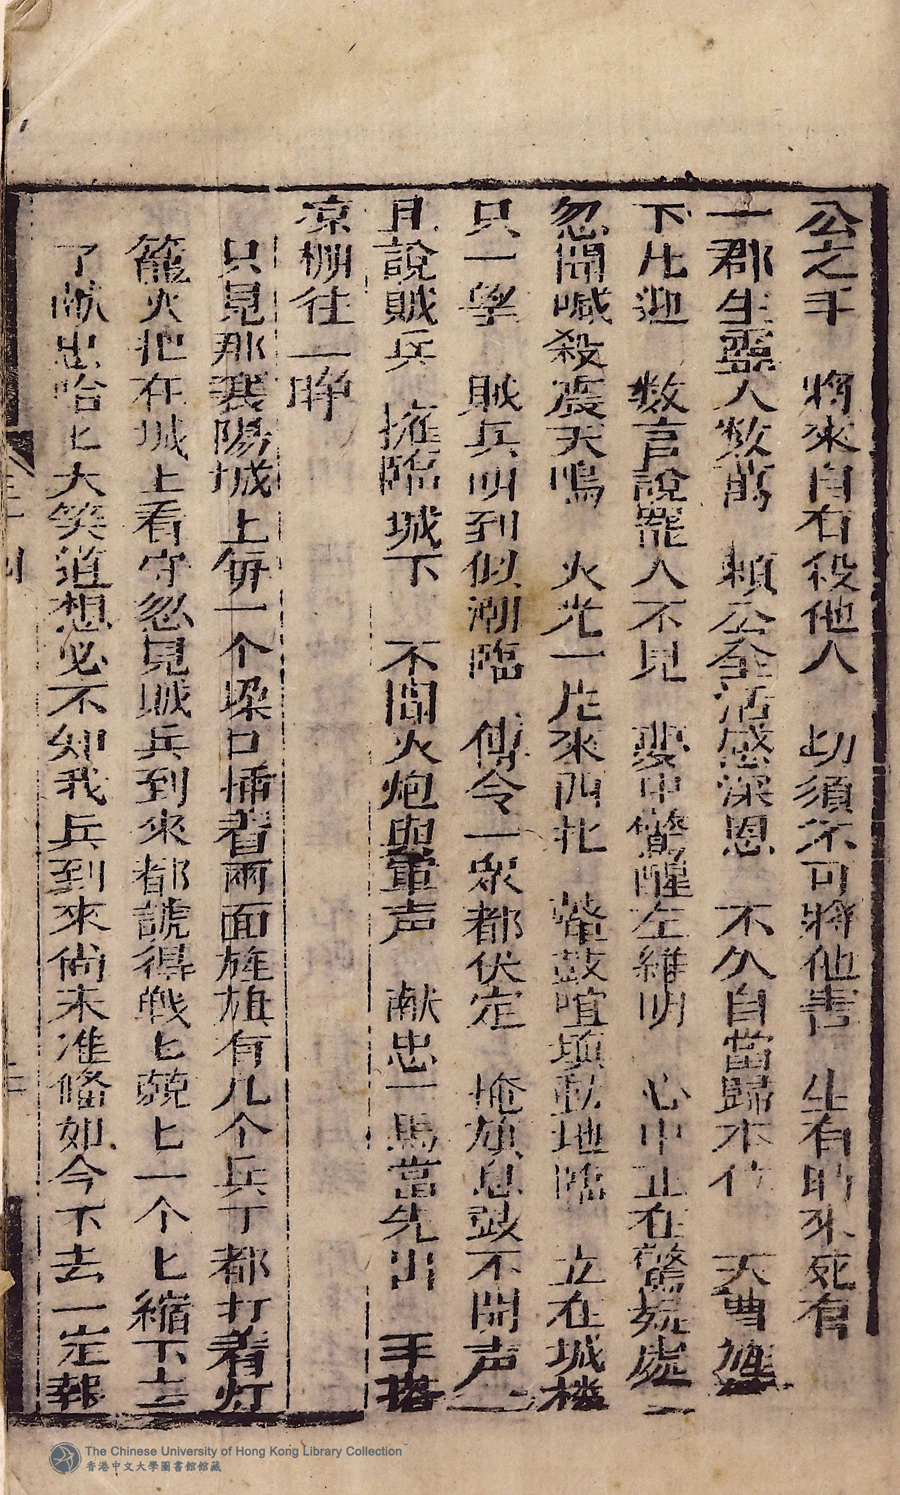 公之手　將來自有役他人　切須不可將他害　生有時來死有
一郡生靈人数萬　頼公全活感深恩　不久自當歸本位　天曹
下凡迎　数言說罷人不見　夢中驚醒左維明　心中正在驚疑處
忽聞喊殺震天鳴　火光一片來西北　鼙鼓喧塡動地臨　立在城楼
只一望　賊兵叫到似潮臨　傳令一衆都伏定　掩旗息鼓不開声
且說賊兵　擁臨城下　不聞火炮與軍声　献忠一馬當先出　手搭
凉棚往一睜
只見那襄陽城上每一个垜口揷着兩面旌旗有几个兵丁都打着灯
籠火把在城上看守忽見賊兵到來都諕得戰匕兢匕一个匕縮下去
了献忠哈匕大笑道想必不知我兵到來尙未准俻如今下去一定報